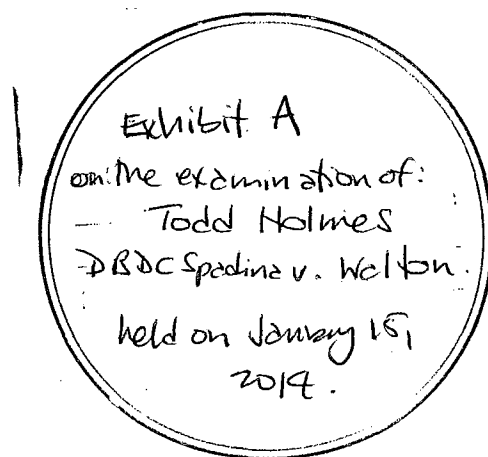 Exhibit A
on: the examination of:
Todd Holmes
DBDC Spadina v. Walton.
held on January 15,
2014.